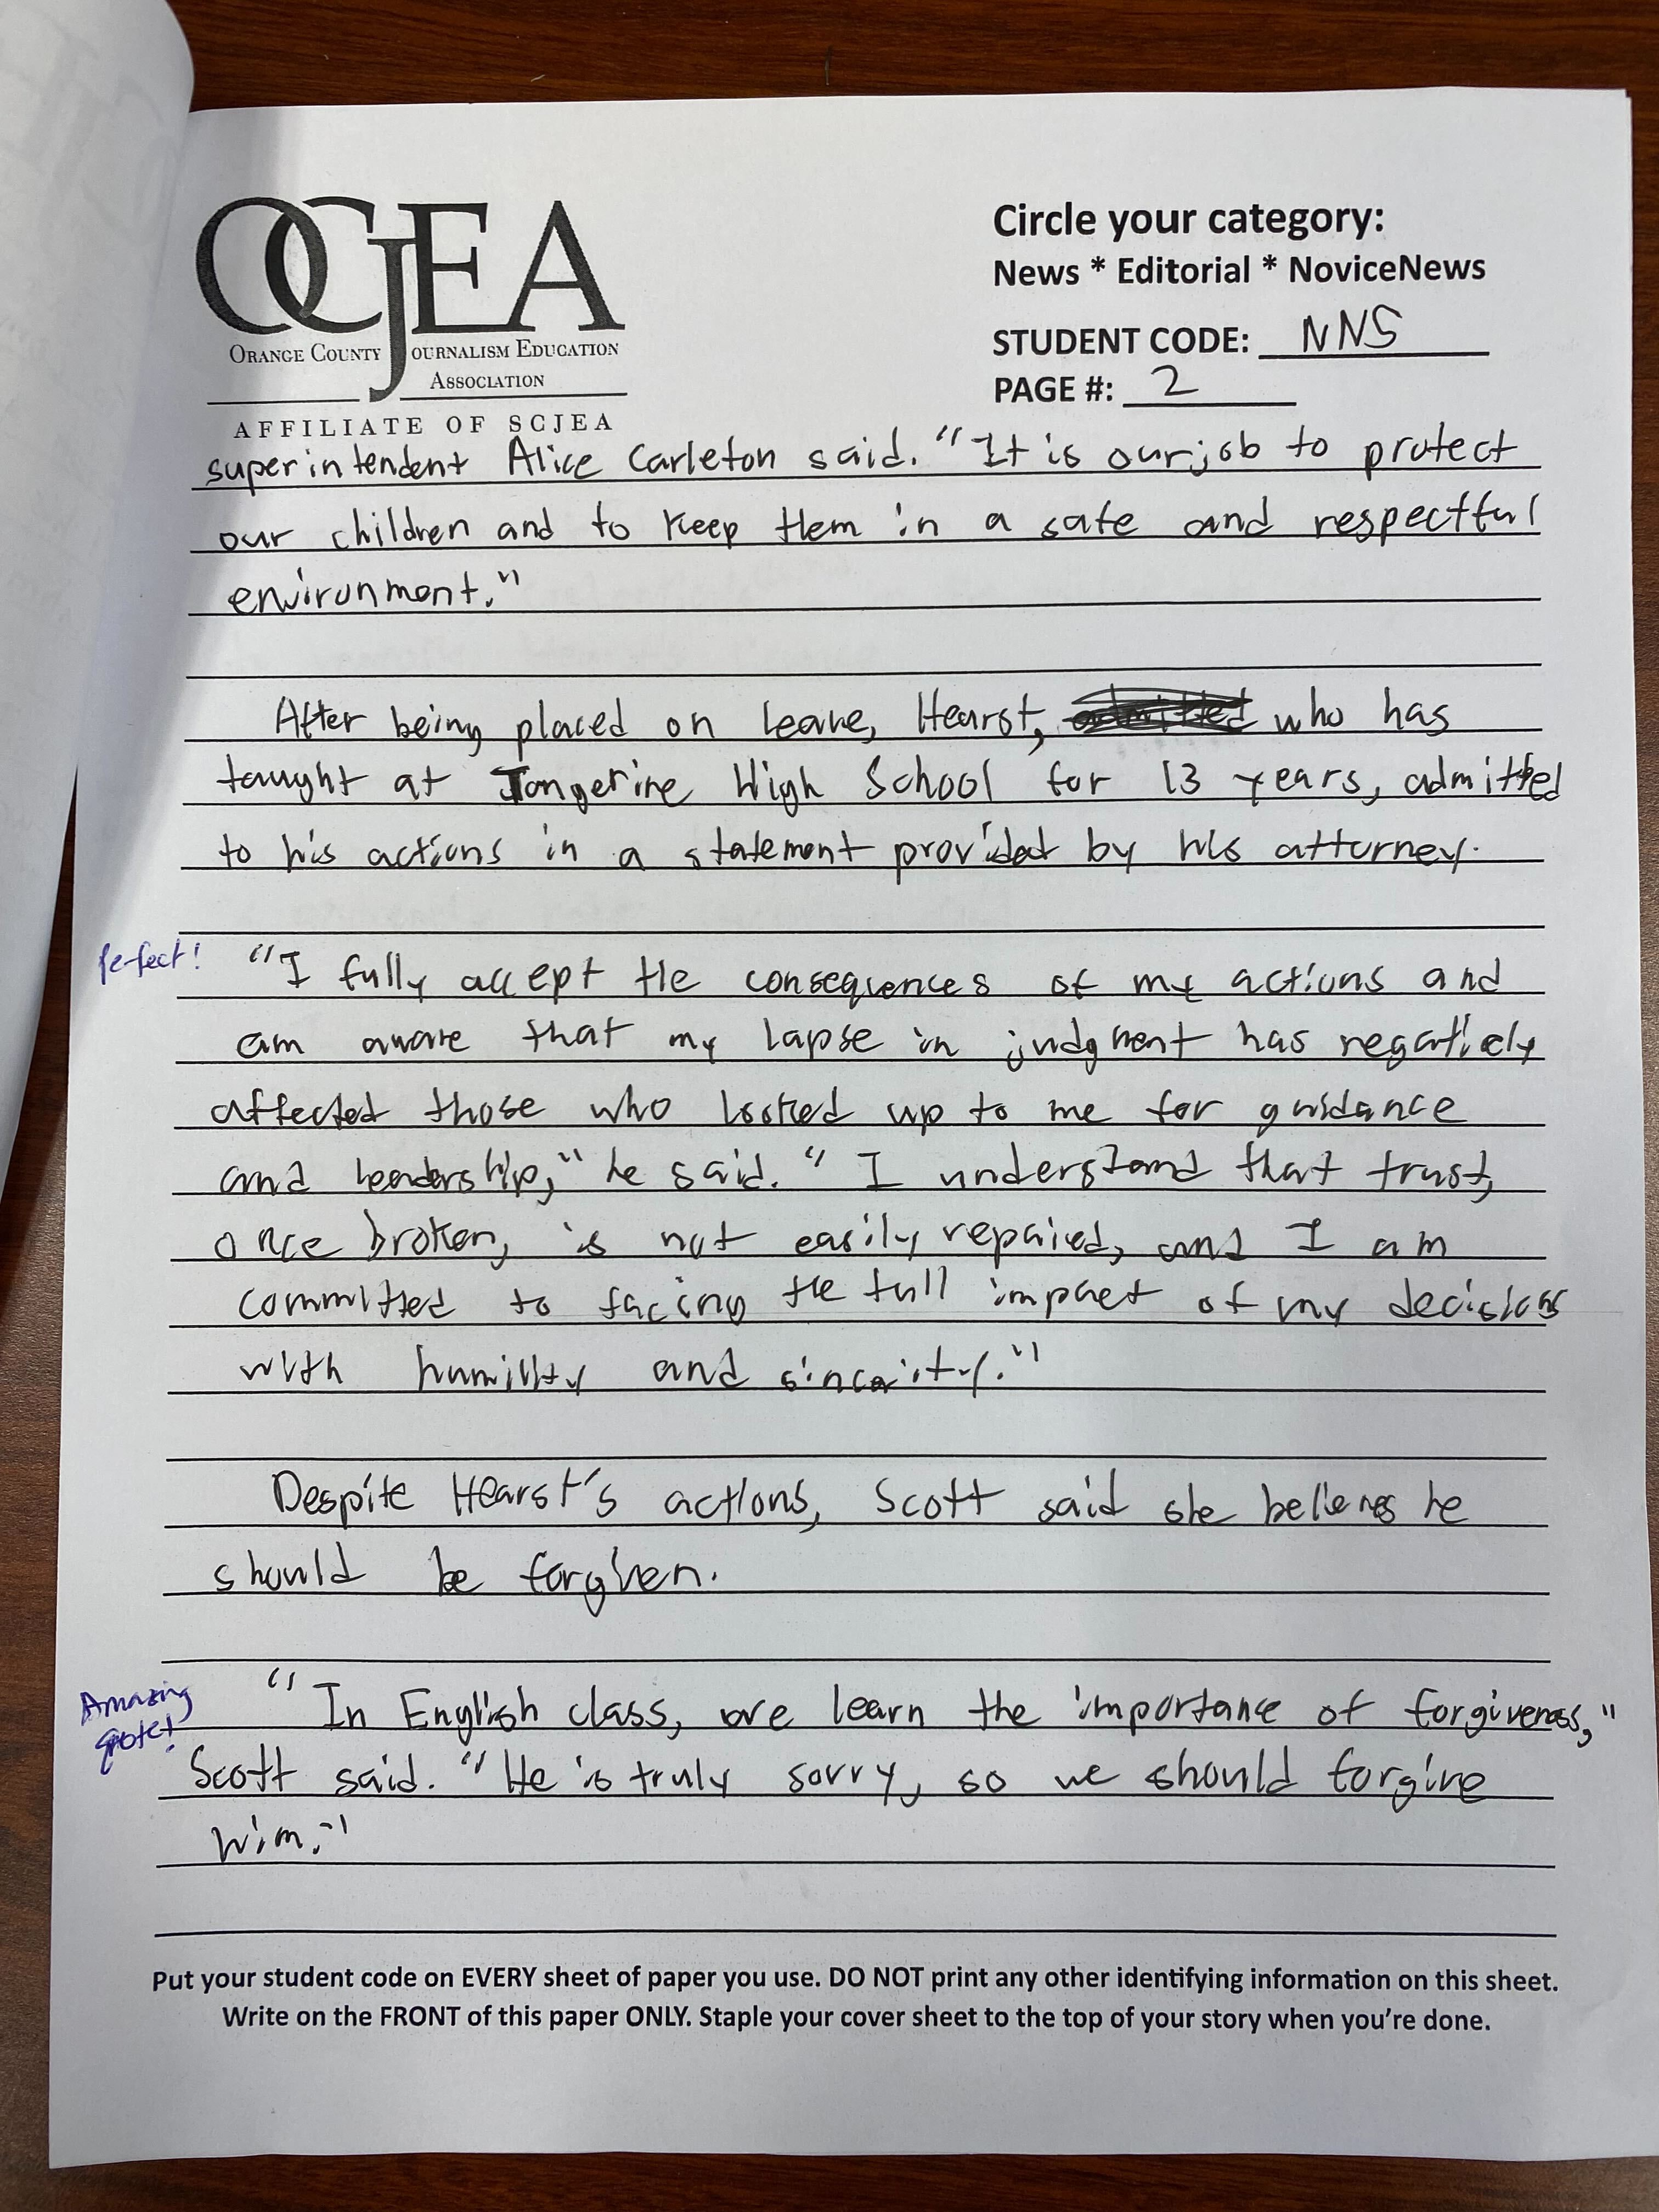 OCJEA
ORANGE COUNTY JOURNALISM EDUCATION
ASSOCIATION
AFFILIATE OF SCJEA
Circle your category:
News * Editorial * NoviceNews
STUDENT CODE: NN5
PAGE #: 2
superintendent Alice Carleton said. "It is our job to protect
our children and to keep them in a safe and respectful
environment."
After being placed on leave, Hearst, admitted who has
taught at Tangerine High School for 13 years, admitted
to his actions in a statement provided by his attorney.
Perfect!
"I fully accept the consequences of my actions and
am aware that my lapse in judgment has negatively
affected those who looked up to me for guidance
and leadership," he said. "I understand that trust,
once broken, is not easily repaired, and I am
committed to facing the full impact of my decisions
with humility and sincerity."
Despite Hearst's actions, Scott said she believes he
should be forgiven.
Amazing
quote!
"In English class, we learn the importance of forgiveness,"
Scott said. "He is truly sorry, so we should forgive
him."
Put your student code on EVERY sheet of paper you use. DO NOT print any other identifying information on this sheet.
Write on the FRONT of this paper ONLY. Staple your cover sheet to the top of your story when you're done.